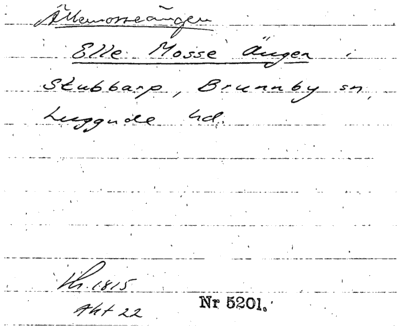 Ällemosseängen
Elle Mosse Ängen i
Stubbarp, Brunnby sn,
Luggude hd.
1815
Akt 22
Nr 5201.